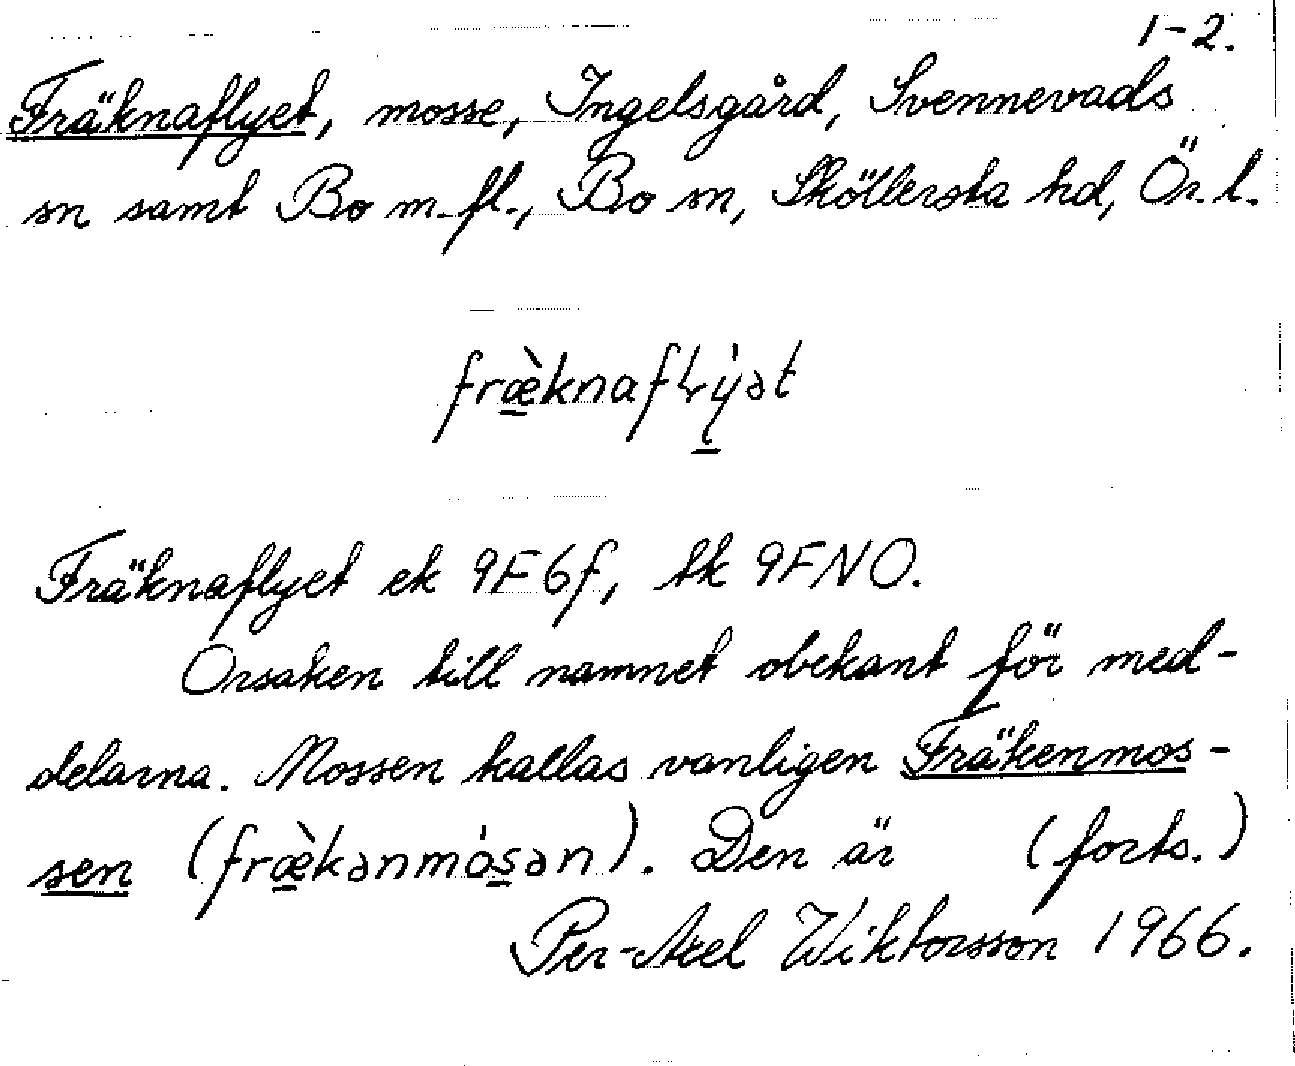 1-2.
Fräknaflyet, mosse, Ingelsgård, Svennevads
sn samt Bo m.fl., Bo sn, Sköllersta hd, Ör. l.
fræ̀knafLẏət
Fräknaflyet ek 9F6f, tk 9FNO.
Orsaken till namnet obekant för med-
delarna. Mossen kallas vanligen Fräkenmos-
sen (fræ̀kənmȯsən). Den är (forts.)
Per-Axel Wiktorsson 1966.